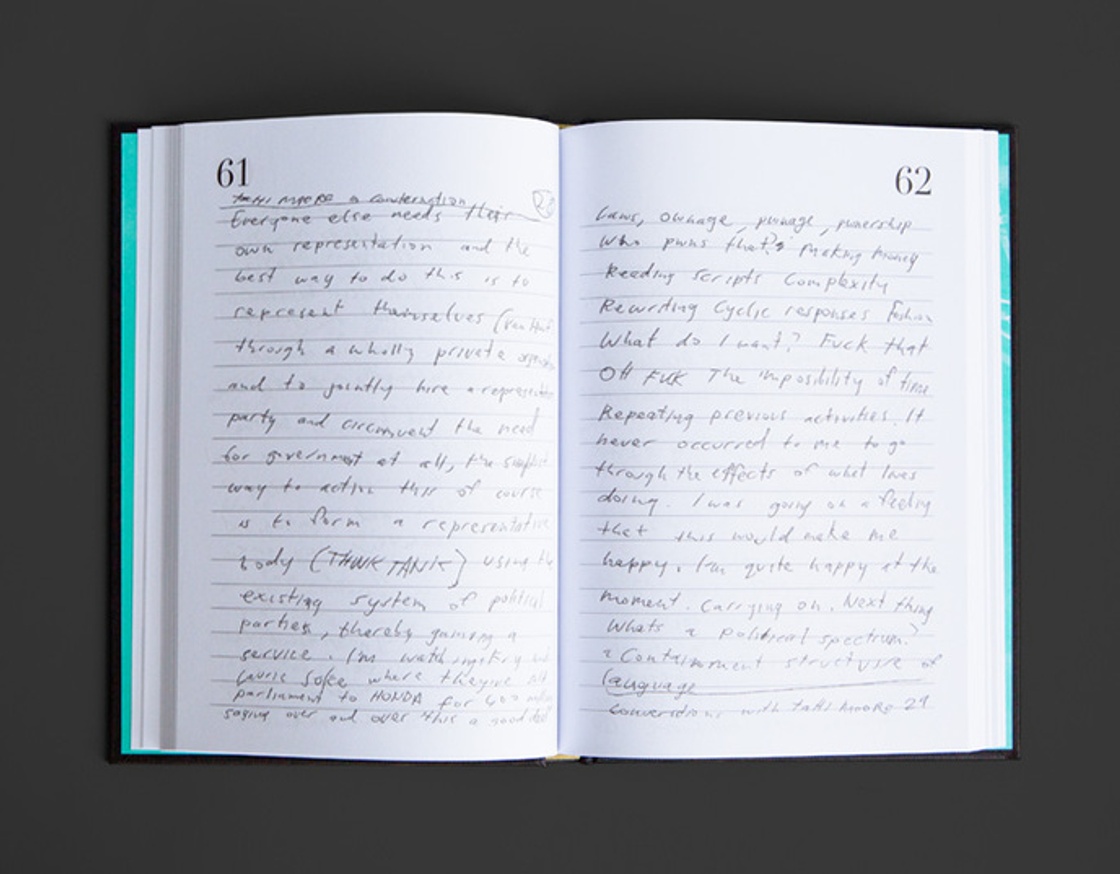 61
tahi moore a conversation
Everyone else needs their
own representation and the
best way to do this is to
represent thainselves
through a wholly private
and to jointly hire a
party and circumvent the need
for government at all, the
way to action this of course
is to form a representative
body (THINK TANK) using the
existing system of political
parties, thereby gaining a
service. I'm watching
where they're
parliament to HONDA for 400
saying over and over this a good deal
62
Laws, ownage, pwnage, pwnership
Who pwns that? Making money
Reading scripts Complexity
Rewriting Cyclic responses Fashion
What do I want? Fuck that
OH FUK The imposibility of time
Repeating previous activities. It
never occurred to me to go
through the effects of what I was
doing. I was going on a feeling
that this would make me
happy. I'm quite happy at the
moment. Carrying on. Next thing
Whats a political spectrum?
a Containment structure of
language
Conversations with tahi moore 29